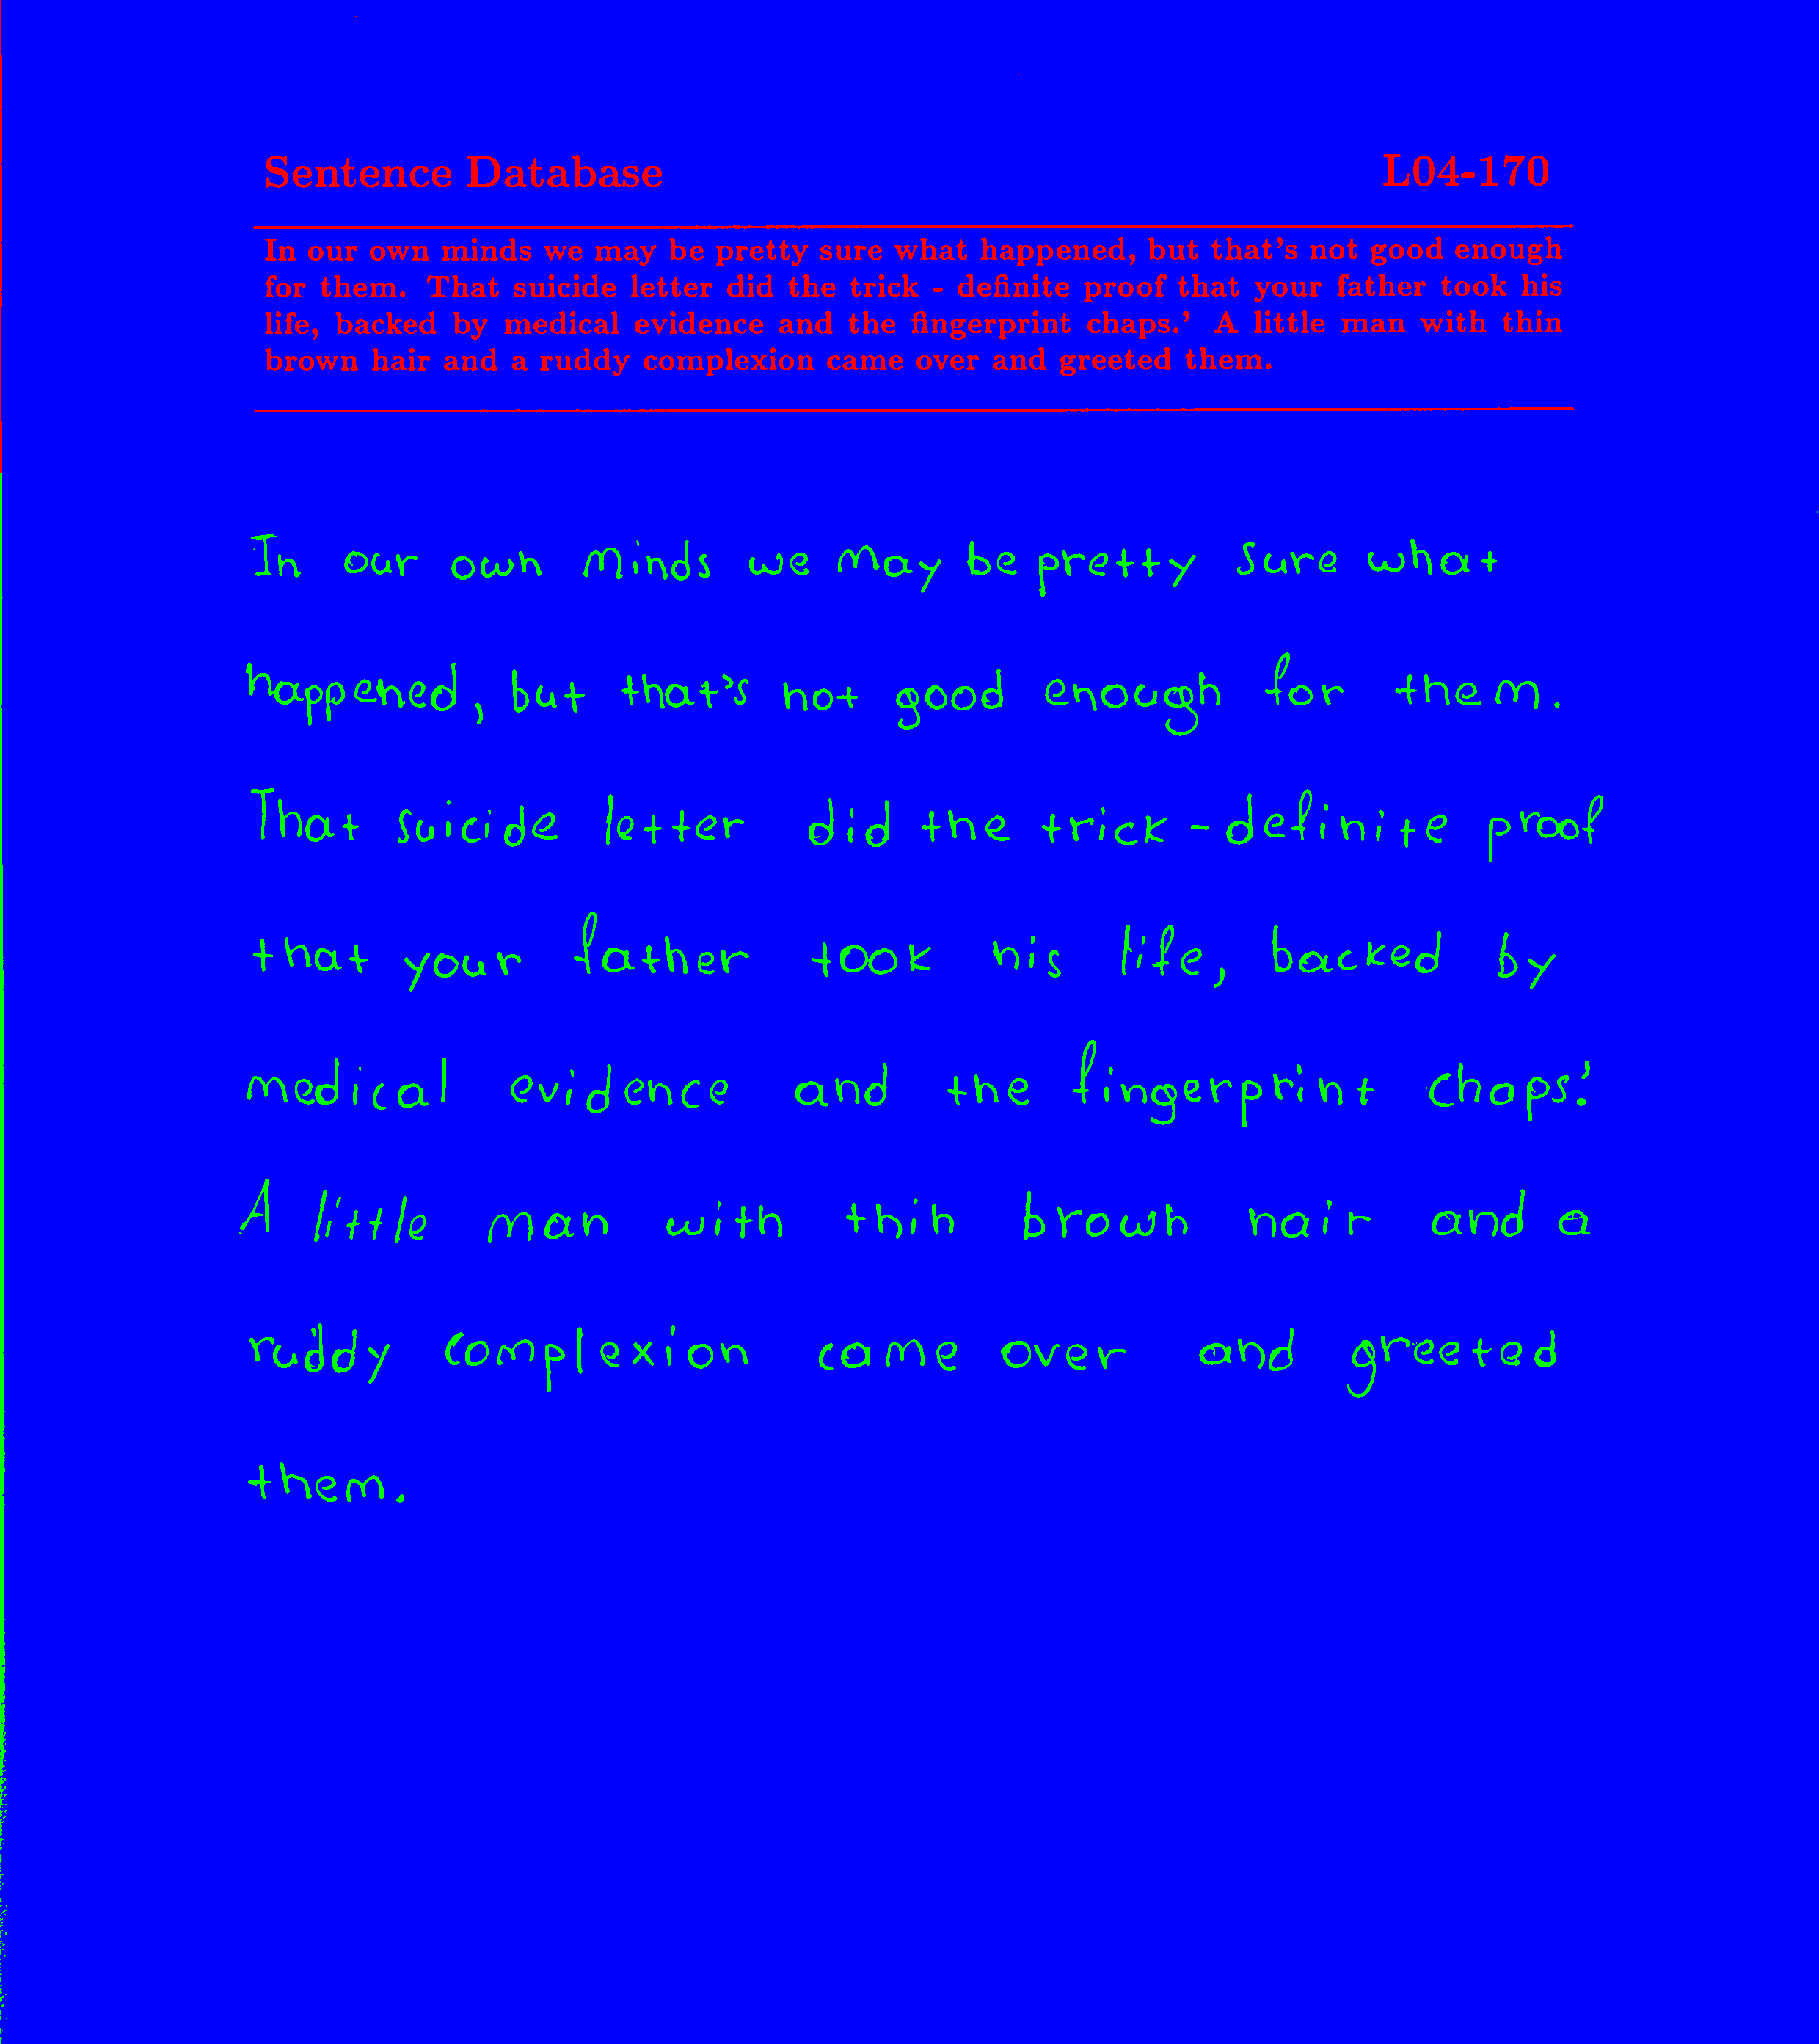 Sentence Database L04-170
In our own minds we may be pretty sure what happened, but that's not good enough
for them. That suicide letter did the trick - definite proof that your father took his
life, backed by medical evidence and the fingerprint chaps.' A little man with thin
brown hair and a ruddy complexion came over and greeted them.
In our own minds we may be pretty sure what
happened, but that's not good enough for them.
That suicide letter did the trick - definite proof
that your father took his life, backed by
medical evidence and the fingerprint chaps.'
A little man with thin brown hair and a
ruddy complexion came over and greeted
them.